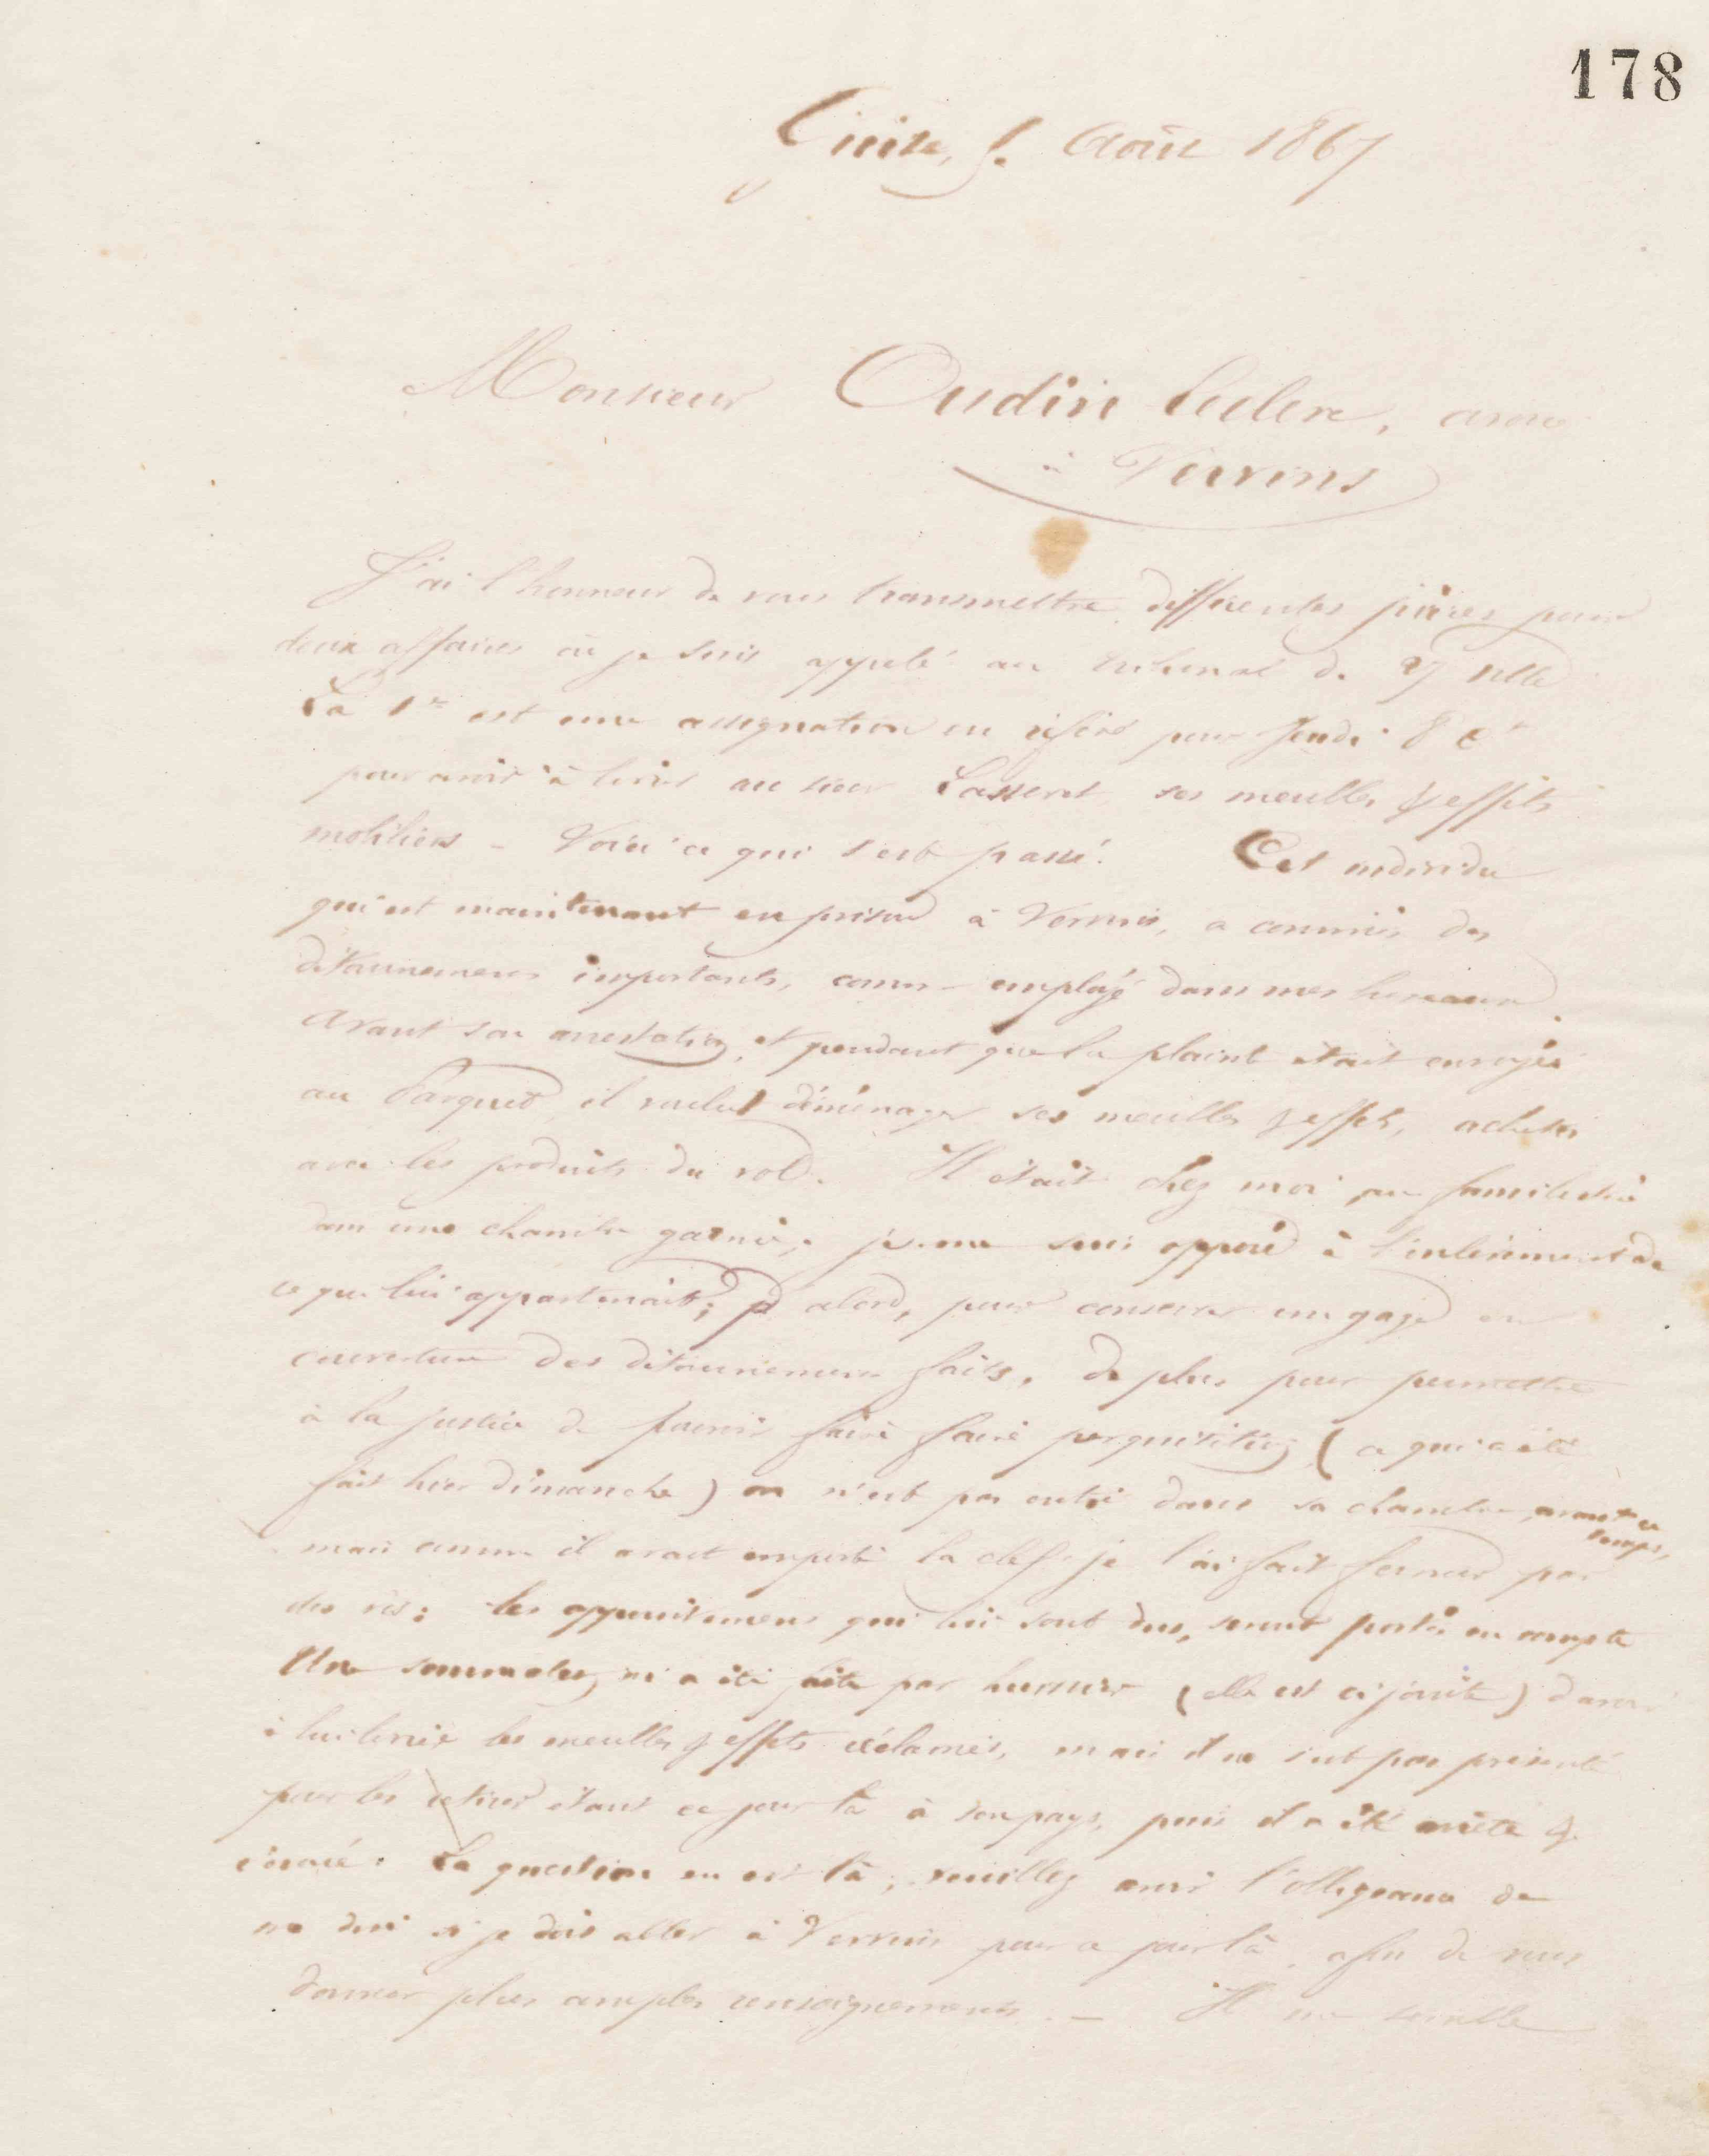 178
Guise, 5. Août 1867
Monsieur Oudin Leclere, avoué
à Vervins
J'ai l'honneur de vous transmettre différentes pièces pour
deux affaires où je suis appelé au tribunal de Vre Ville
La 1re est une assignation en référé pour Jeudi 8 Ct
pour avoir à livrer au sieur Lasseret ses meubles & effets
mobiliers - Voici ce qui s'est passé. Cet individu
qui est maintenant en prison à Vervins, a commis des
détournemens importants, comme employé dans mes bureaux.
Avant son arrestation, et pendant que la plainte était envoyée
au Parquet, il voulut déménager ses meubles & effets, achetés
avec les produits du vol. Il était chez moi au familistère
dans une chambre garnie; je me suis opposé à l'enlèvement de
ce qui lui appartenait; d'abord, pour conserver un gage en
couverture des détournemens faits, de plus pour permettre
à la justice de pouvoir faire faire perquisition (ce qui a été
fait hier dimanche) on n'est pas entré dans sa chambre avant ce
temps,
mais comme il avait emporté la clef je l'ai fait fermer par
des vis; les appointemens qui lui sont dus, seront portés en compte
Une sommation m'a été faite par huissier (elle est ci jointe) d'avoir
à lui livrer les meubles & effets réclamés, mais il ne s'est pas présenté
pour les retirer étant ce jour là à son pays, puis il a été arrêté &
écroué. La question en est là; veuillez avoir l'obligeance de
me dire si je dois aller à Vervins pour ce jour là, afin de vous
donner plus amples renseignements. - Il me semble